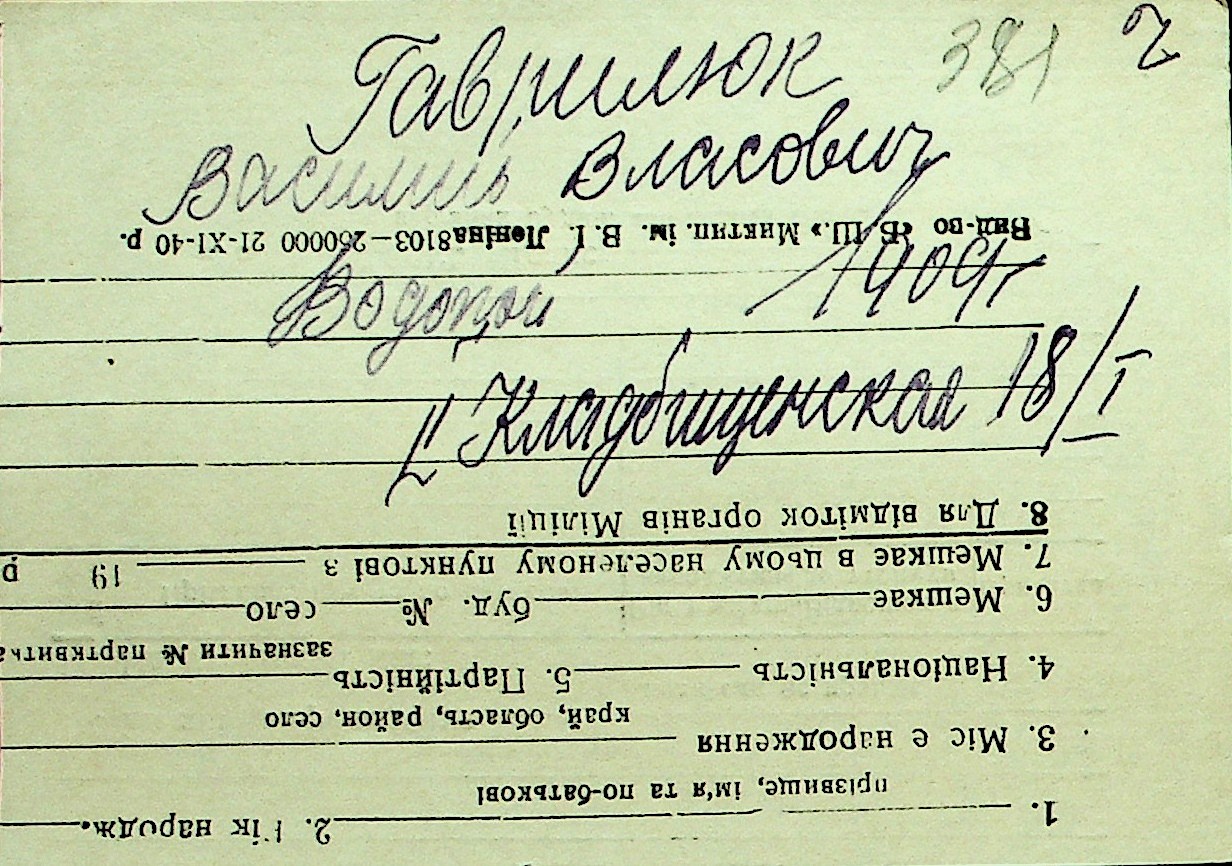 381 г
Гаврилюк
Василий Власович
1909г
Водопой
II Кладбищенская 18/I
1. 2. Рік народж.
прізвище, ім'я та по-батькові
3. Місце народження
край, область, район, село
4. Національність 5. Партійність
зазначити № партквитка
6. Мешкає буд. № село
7. Мешкає в цьому населеному пунктові з 19 р
8. Для відміток органів Міліції
Вид-во «Б. Ш.» Миктип. ім. В. І. Леніна 8103—250000 21-XI-40 р.